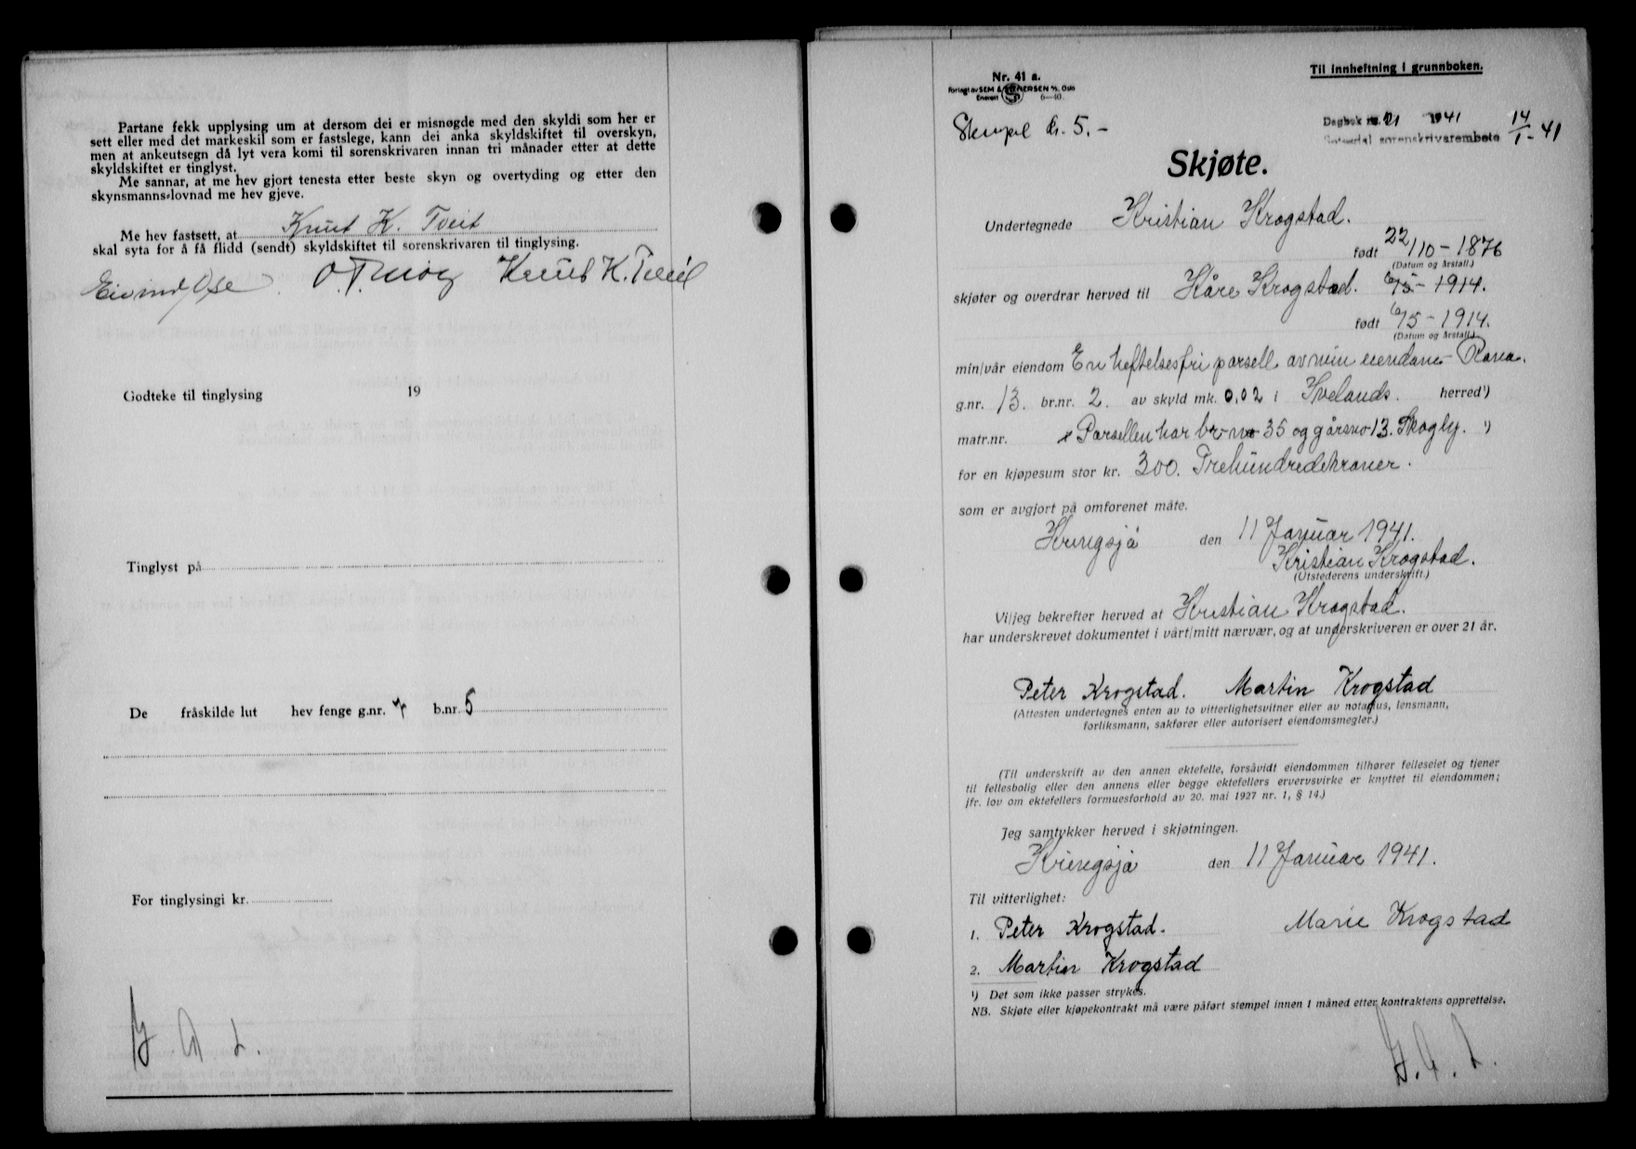 Partane fekk upplysing um at dersom dei er misnøgde med den skyldi som her er
sett eller med det markeskil som er fastslege, kann dei anka skyldskiftet til overskyn,
men at ankeutsegn då lyt vera komi til sorenskrivaren innan tri månader etter at dette
skyldskiftet er tinglyst.
Me sannar, at me hev gjort tenesta etter beste skyn og overtyding og etter den
skynsmanns-lovnad me hev gjeve.
Me hev fastsett, at Knut K. Tveit
skal syta for å få flidd (sendt) skyldskiftet til sorenskrivaren til tinglysing.
Eivind Ose O. T. Knut K. Tveit
Godteke til tinglysing 19
Tinglyst på
De fråskilde lut hev fenge g.nr. b.nr. 5
For tinglysingi kr.
Til innheftning i grunnboken.
Nr. 41 a.
Forlagt av SEM & STENERSEN A/S, Oslo
Enerett 6—40.
Stempel kr. 5.-
Dagbok nr. 21 1941 14/1-41
sorenskrivarembete
Skjøte.
Undertegnede Kristian Krogstad.
født 22/10-1876
(Datum og årstall.)
skjøter og overdrar herved til Kåre Krogstad. 6/5-1914.
født 6/5-1914.
(Datum og årstall.)
min/vår eiendom En heftelsesfri parsell av min eiendom Rona.
g.nr. 13. br.nr. 2. av skyld mk. 0,02 i Ivelands. herred¹)
matr.nr. Parsellen har br no 35 og gårsno 13. Skogly. ¹)
for en kjøpesum stor kr. 300. Trehundredekroner.
som er avgjort på omforenet måte.
Kringsjå den 11 Januar 1941.
Kristian Krogstad.
(Utstederens underskrift.)
Vi/jeg bekrefter herved at Kristian Krogstad.
har underskrevet dokumentet i vårt/mitt nærvær, og at underskriveren er over 21 år.
Peter Krogstad. Martin Krogstad
(Attesten undertegnes enten av to vitterlighetsvitner eller av notarius, lensmann,
forliksmann, sakfører eller autorisert eiendomsmegler.)
(Til underskrift av den annen ektefelle, forsåvidt eiendommen tilhører felleseiet og tjener
til fellesbolig eller den annens eller begge ektefellers ervervsvirke er knyttet til eiendommen;
jfr. lov om ektefellers formuesforhold av 20. mai 1927 nr. 1, § 14.)
Jeg samtykker herved i skjøtningen.
Kringsjå den 11 Januar 1941.
Til vitterlighet:
1. Peter Krogstad. Marie Krogstad
2. Martin Krogstad
¹) Det som ikke passer strykes.
NB. Skjøte eller kjøpekontrakt må være påført stempel innen 1 måned etter kontraktens opprettelse.